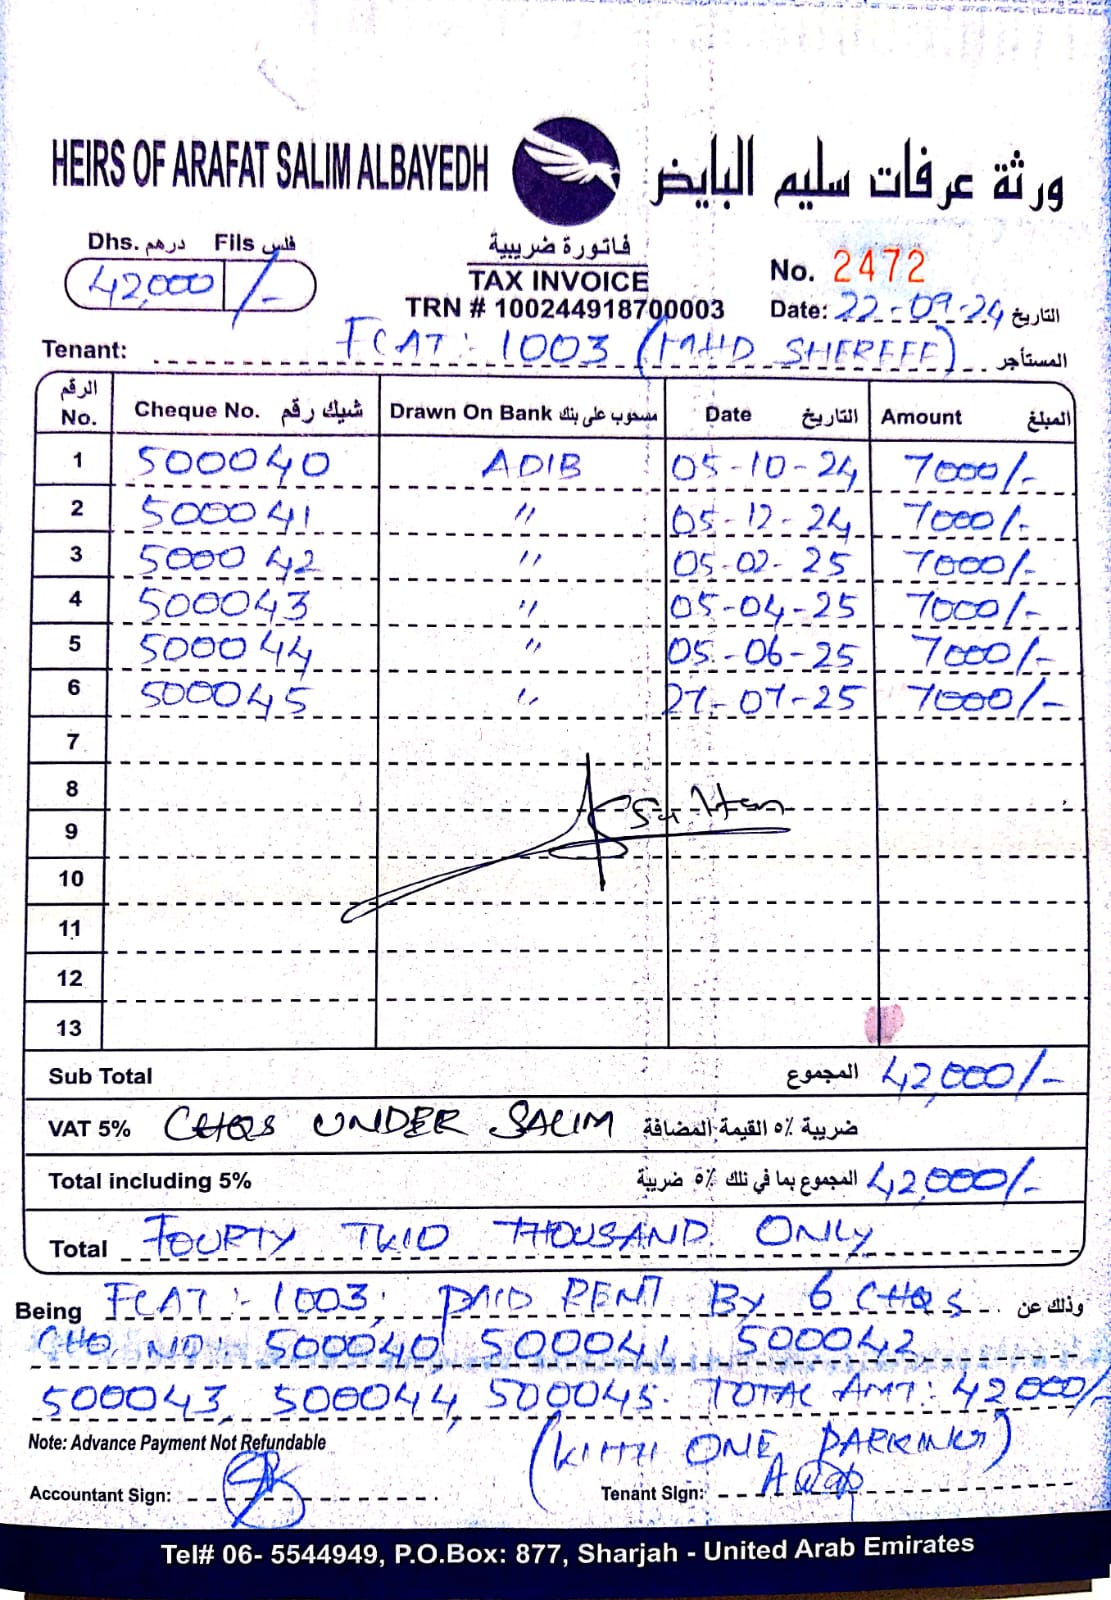 HEIRS OF ARAFAT SALIM ALBAYEDH ورثة عرفات سليم البايض
Dhs. درهم Fils فلس
42,000 /-
فاتورة ضريبية
TAX INVOICE
TRN # 100244918700003
No. 2472
Date: 22-09-24 التاريخ
Tenant: FLAT: 1003 (MHD SHEREEF) المستأجر
الرقم No. Cheque No. شيك رقم Drawn On Bank مسحوب على بنك Date التاريخ Amount المبلغ
1 500040 ADIB 05-10-24 7000/-
2 500041 " 05-12-24 7000/-
3 500042 " 05-02-25 7000/-
4 500043 " 05-04-25 7000/-
5 500044 " 05-06-25 7000/-
6 500045 " 27-07-25 7000/-
7
8
9
10
11
12
13
Sub Total المجموع 42,000/-
VAT 5% CHQS UNDER SALIM ضريبة ٥٪ القيمة المضافة
Total including 5% المجموع بما في ذلك ٥٪ ضريبة 42,000/-
Total FOURTY TWO THOUSAND ONLY
Being FLAT:- 1003, PAID RENT By 6 CHQS وذلك عن
CHQ NO: 500040, 500041, 500042
500043, 500044, 500045. TOTAL AMT: 42000/-
Note: Advance Payment Not Refundable
(WITH ONE PARKING)
Accountant Sign:
Tenant Sign:
Tel# 06- 5544949, P.O.Box: 877, Sharjah - United Arab Emirates